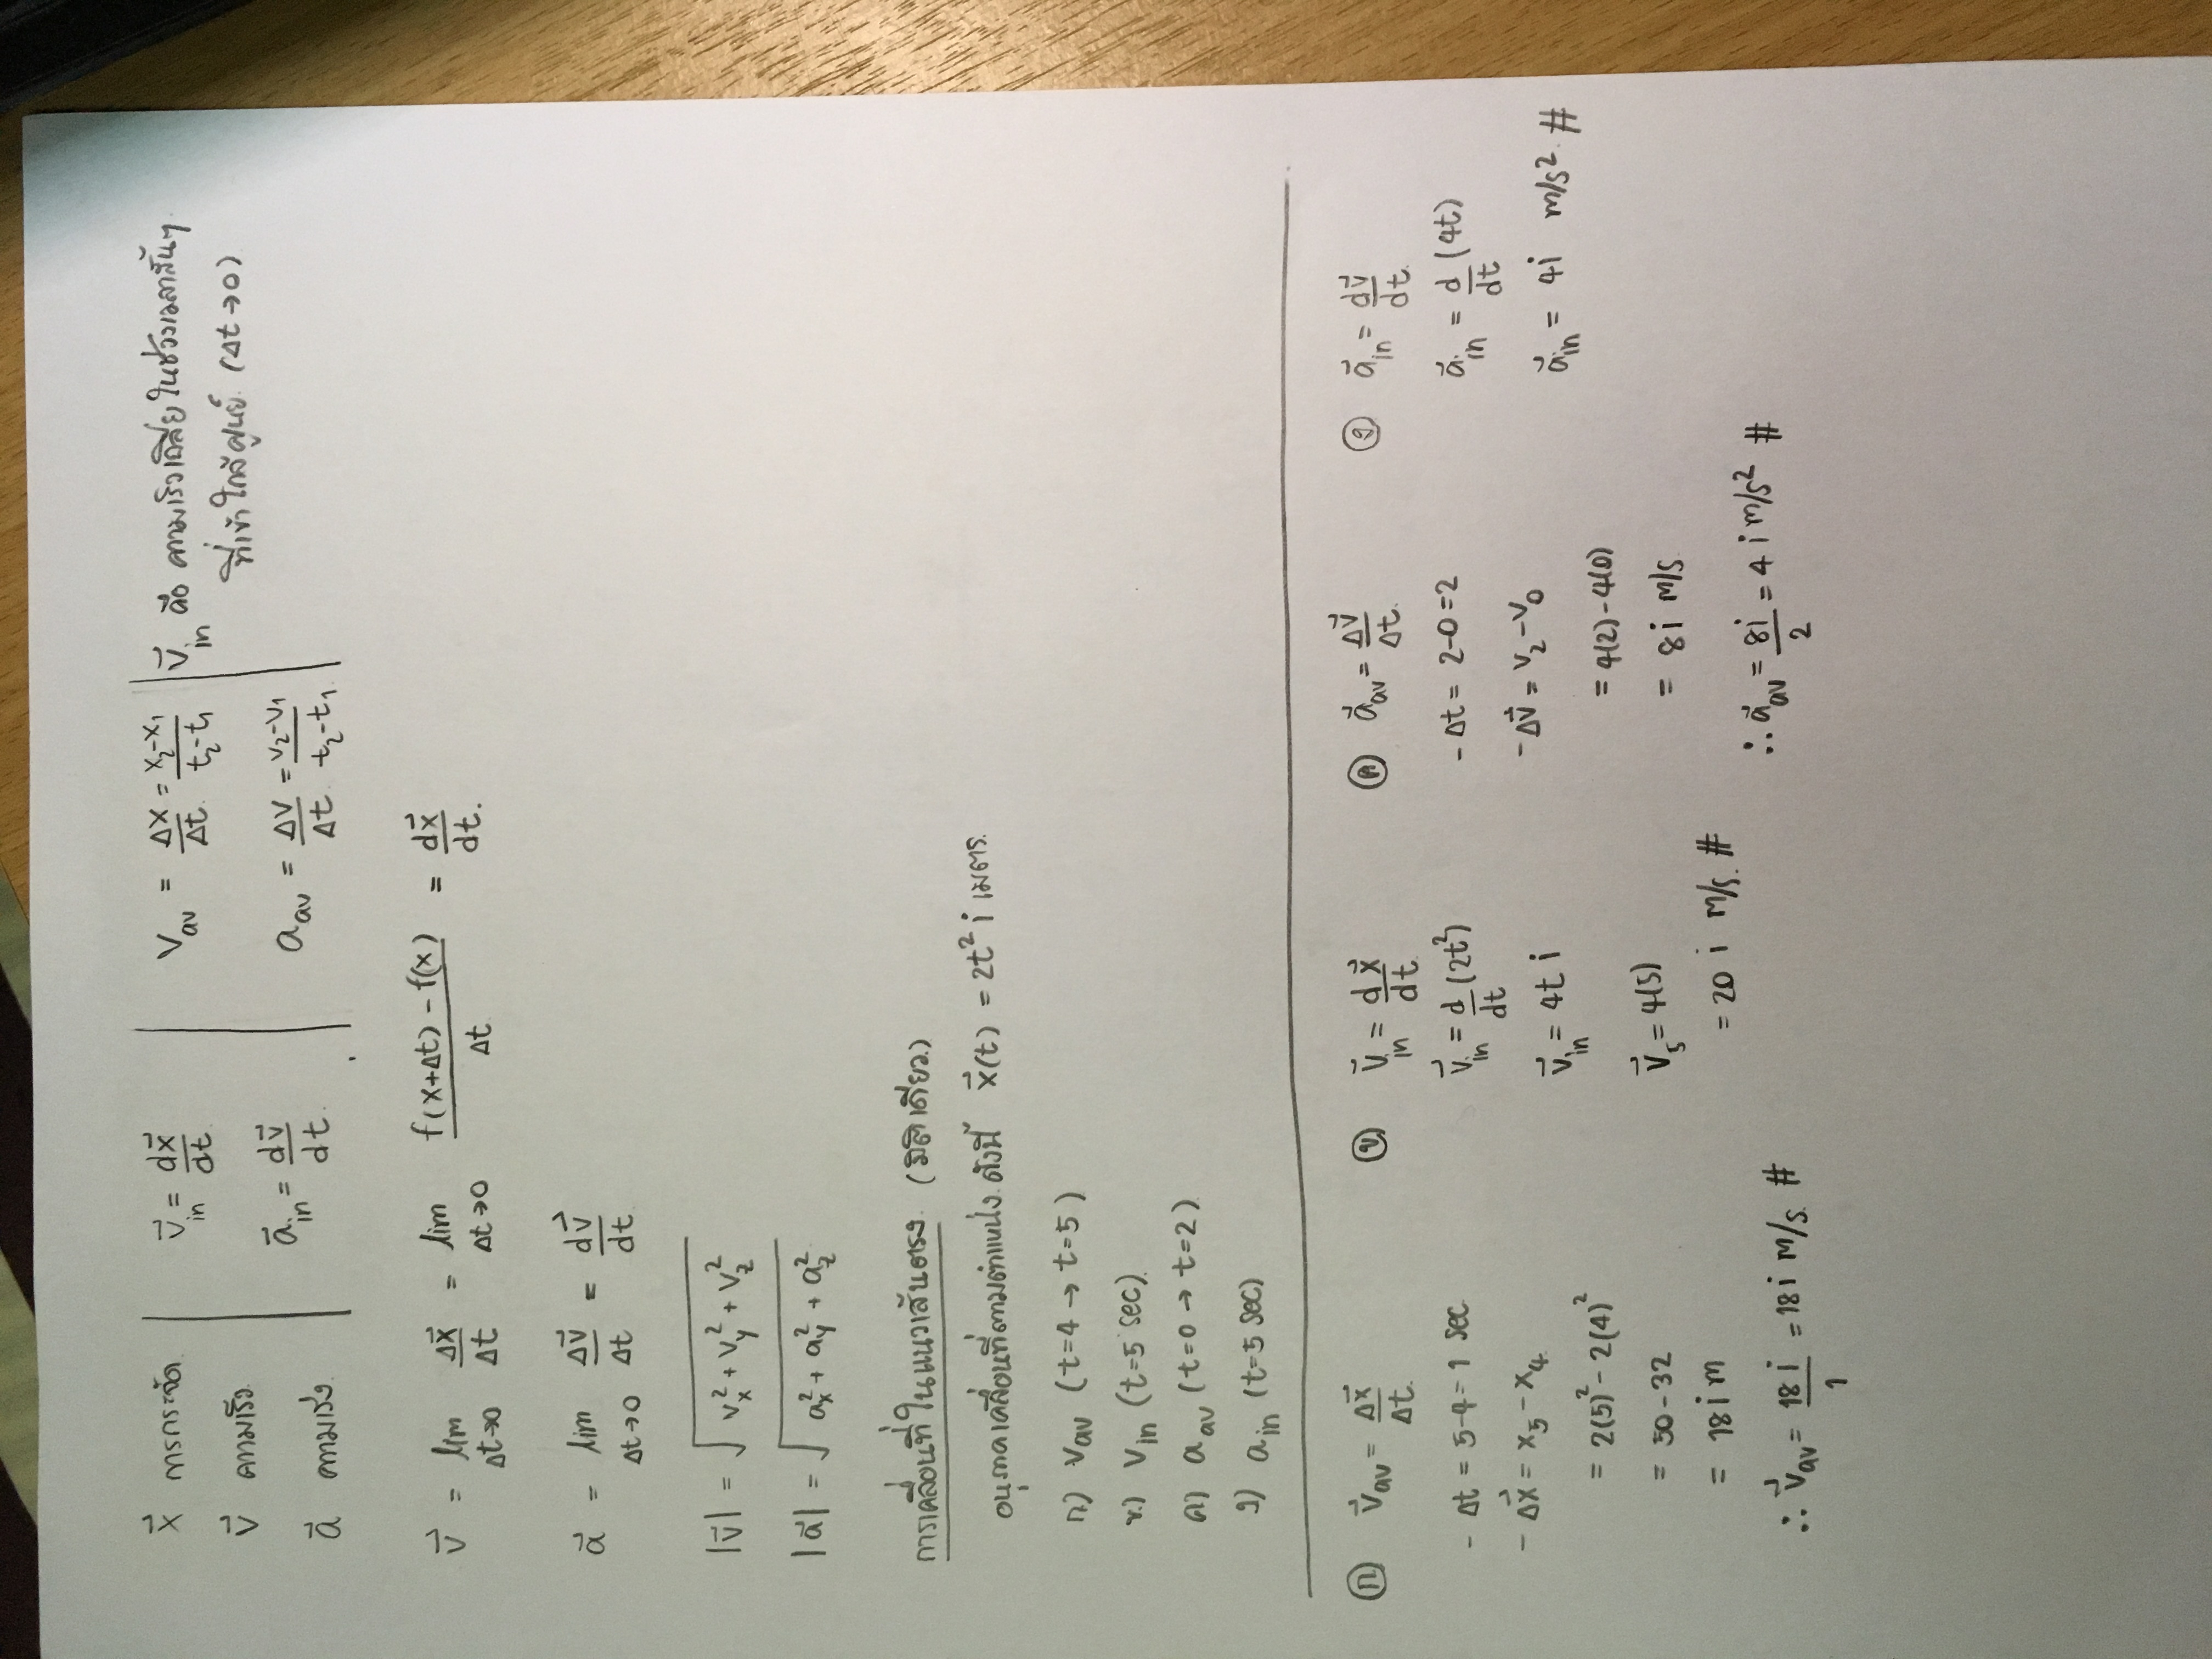 x⃗ การกระจัด
v⃗ ความเร็ว
a⃗ ความเร่ง
v⃗in = dx⃗/dt
a⃗in = dv⃗/dt
Vav = Δx/Δt = x₂-x₁/t₂-t₁
aav = Δv/Δt = v₂-v₁/t₂-t₁
v⃗in คือ ความเร็วเฉลี่ยในช่วงเวลาสั้นๆ
ที่เข้าใกล้ศูนย์ (Δt→0)
v⃗ = lim Δt→0 Δx⃗/Δt = lim Δt→0 f(x+Δt) - f(x)/Δt = dx⃗/dt
a⃗ = lim Δt→0 Δv⃗/Δt = dv⃗/dt
|v⃗| = √vx² + vy² + vz²
|a⃗| = √ax² + ay² + az²
การเคลื่อนที่ในแนวเส้นตรง (มิติเดียว)
อนุภาคเคลื่อนที่ตามตำแหน่ง ดังนี้ x⃗(t) = 2t² i เมตร
ก) vav (t=4 → t=5)
ข) vin (t=5 sec)
ค) aav (t=0 → t=2)
ง) ain (t=5 sec)
ก v⃗av = Δx⃗/Δt
- Δt = 5-4 = 1 sec
- Δx⃗ = x₅ - x₄
= 2(5)² - 2(4)²
= 50 - 32
= 18 i m
∴ v⃗av = 18 i/1 = 18 i m/s #
ข v⃗in = dx⃗/dt
v⃗in = d/dt (2t²)
v⃗in = 4t i
v⃗₅ = 4(5)
= 20 i m/s #
ค a⃗av = Δv⃗/Δt
- Δt = 2-0 = 2
- Δv⃗ = v₂ - v₀
= 4(2) - 4(0)
= 8 i m/s
∴ a⃗av = 8i/2 = 4 i m/s² #
ง a⃗in = dv⃗/dt
a⃗in = d/dt (4t)
a⃗in = 4i m/s² #